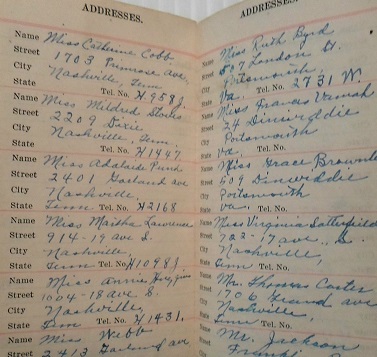 ADDRESSES.
Name Miss Catherine Cobb
Street 1703 Primrose Ave
City Nashville, Tenn
State Tel. No. H958J.
Name Miss Mildred Stoves
Street 2209 Dixie
City Nashville, Tenn.
State Tel. No. H1447
Name Miss Adelaide Fund
Street 2401 Garland ave
City Nashville,
State Tenn Tel. No. H2168
Name Miss Martha Lawrence
Street 914-19 ave S.
City Nashville,
State Tenn Tel. No. H1098J.
Name Miss Annie
Street 1004-18 ave S.
City Nashville,
State Tenn Tel. No. H1431.
Name Miss Webb
Street 2413 Garland ave
ADDRESSES.
Name Miss Ruth Byrd
Street 507 London St.
City Portsmouth
State Va. Tel. No. 2731 W.
Name Miss Frances
Street 24 Dinwiddie
City Portsmouth
State Va. Tel. No.
Name Miss Grace
Street 509 Dinwiddie
City Portsmouth
State Va. Tel. No.
Name Miss Virginia Satterfield
Street 702-17 ave S.
City Nashville,
State Tenn Tel. No.
Name Mr. Thomas Carter
Street 1706 Grand ave
City Nashville,
State Tenn Tel. No.
Name Mr. Jackson